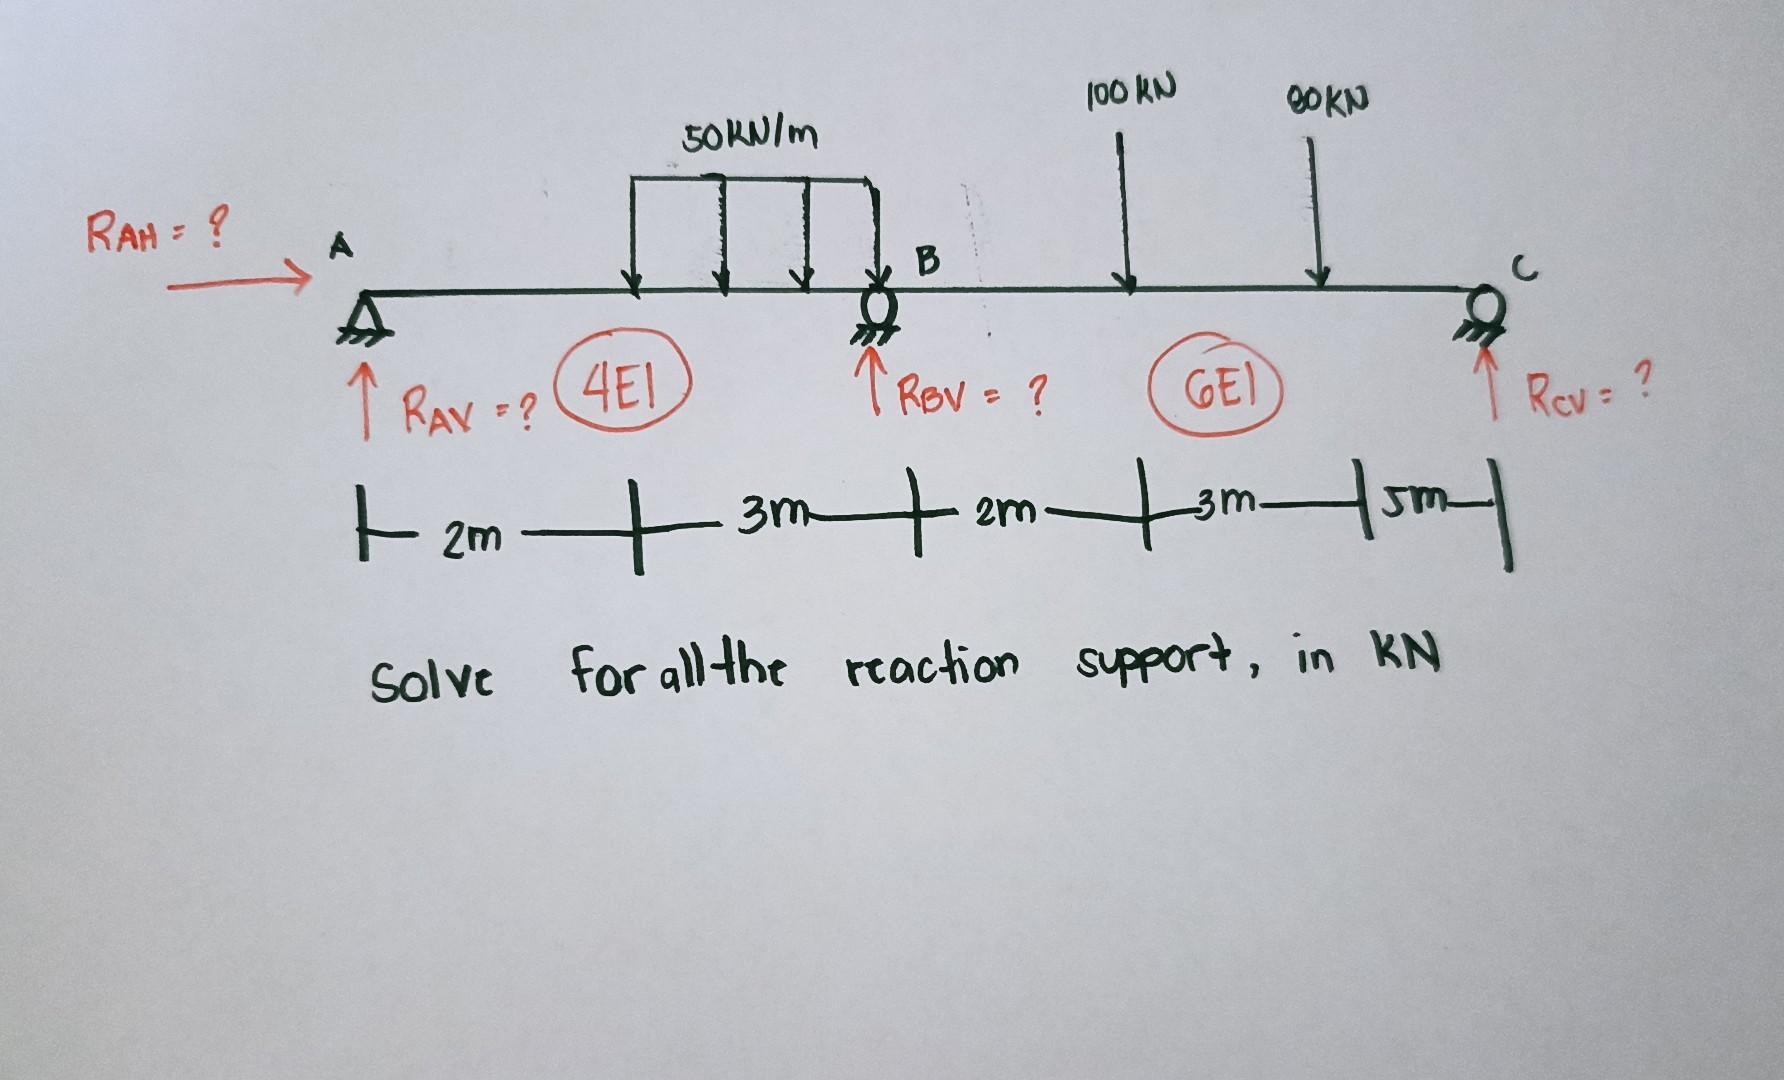 100 KN
80 KN
50KN/m
RAH = ?
A
B
C
4EI
6EI
RAV = ?
RBV = ?
RCV = ?
2m 3m 2m 3m 5m
Solve for all the reaction support, in KN